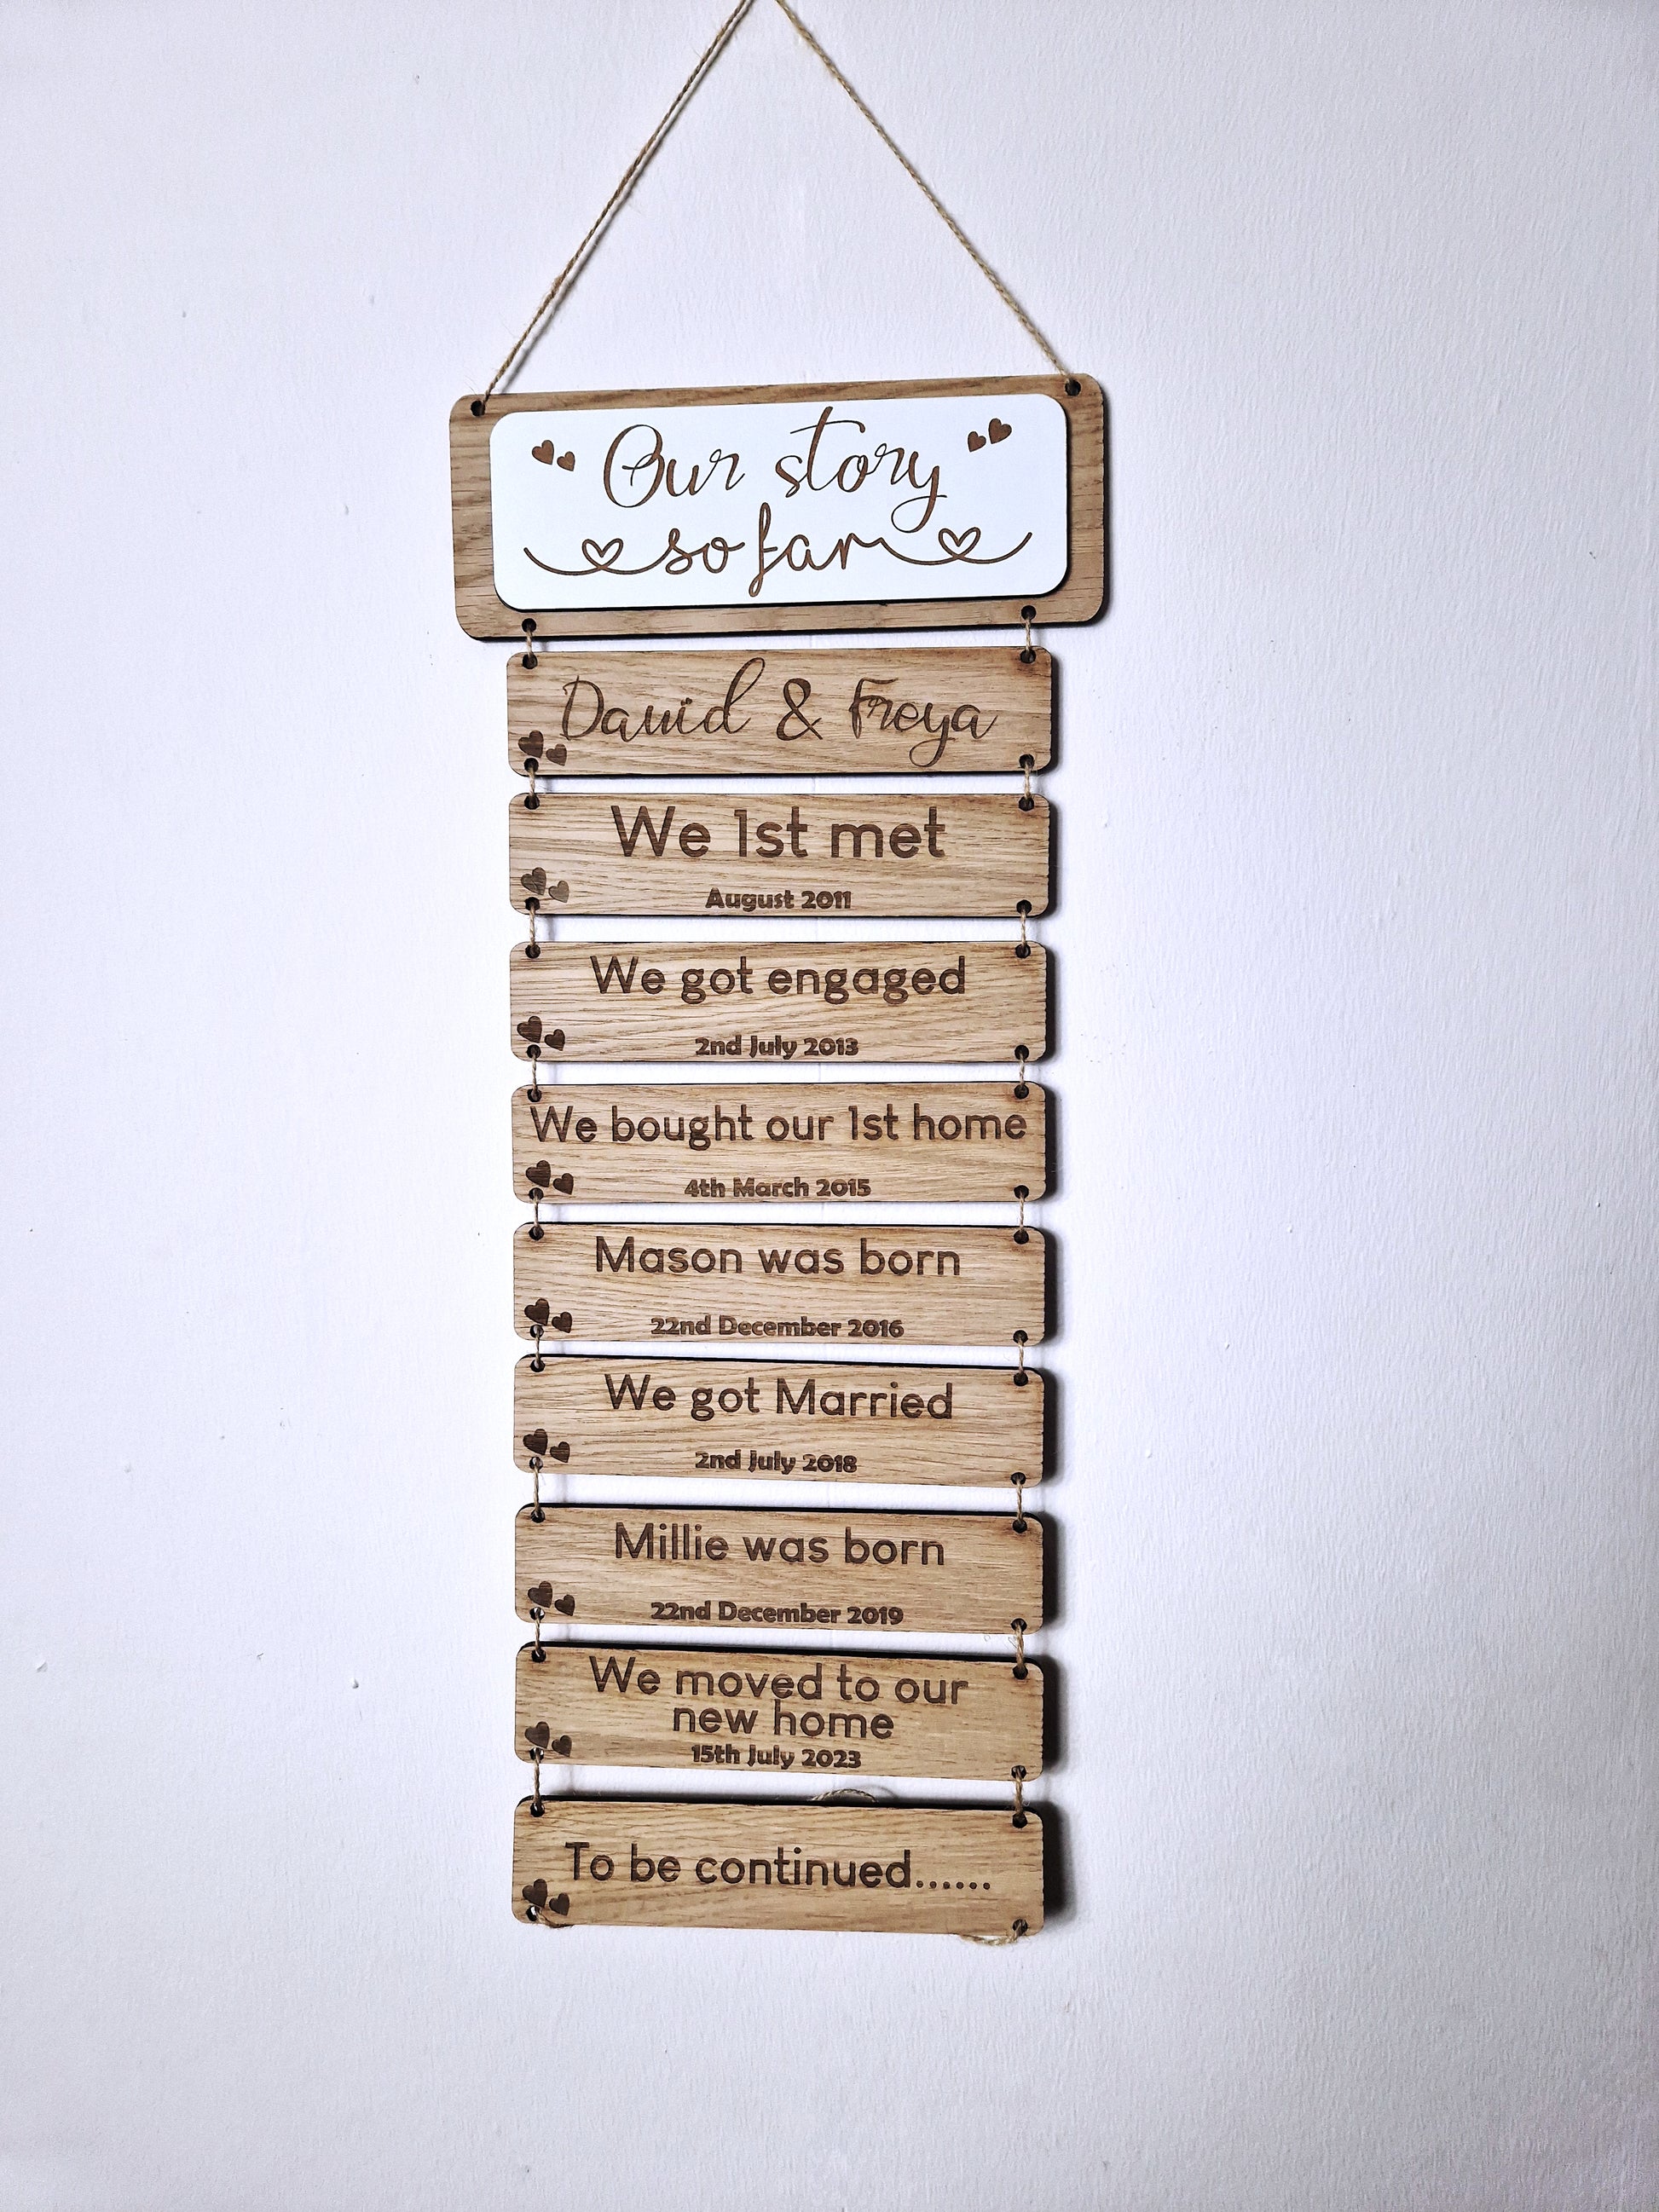 Our story
so far
David & Freya
We 1st met
August 2011
We got engaged
2nd July 2013
We bought our 1st home
4th March 2015
Mason was born
22nd December 2016
We got Married
2nd July 2018
Millie was born
22nd December 2019
We moved to our
new home
15th July 2023
To be continued......